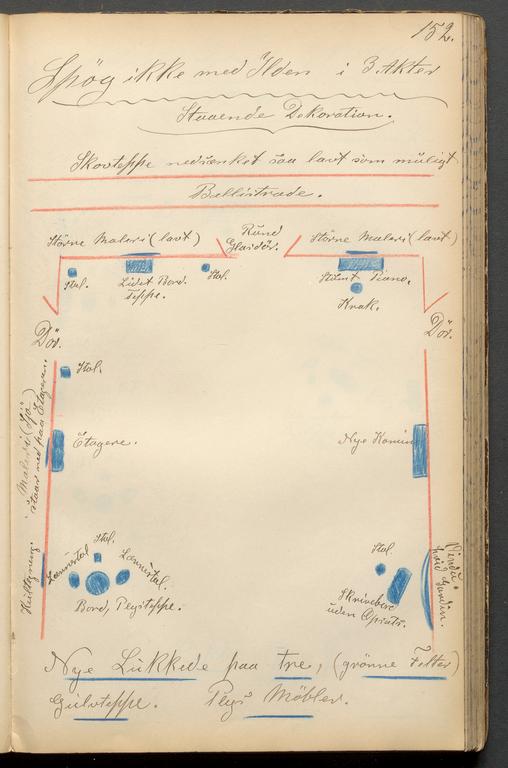 152.
Spøg ikke med Ilden i 3 Akter
Staaende Dekoration.
Skovteppe nedsænket saa lavt som muligt
Ballistrade.
Større Maleri (lavt)
Rund
Glasdör.
Större Maleri (lavt)
Stol.
Lidet Bord.
Teppe.
Stol.
Stumt Piano.
Krak.
Dör.
Dör.
Stol.
Maleri (Sjö)
staar ned paa Etageren.
Etagere.
Nye Kamin
Stol.
Lænestol
Lænestol.
Bord, Plysteppe.
Kultegning.
Stol.
Skrivebord
uden Opsats.
Vindu
hvid Gardin.
Nye Lukkede paa tre, (grönne Felter)
Gulvteppe. Plys Möbler.